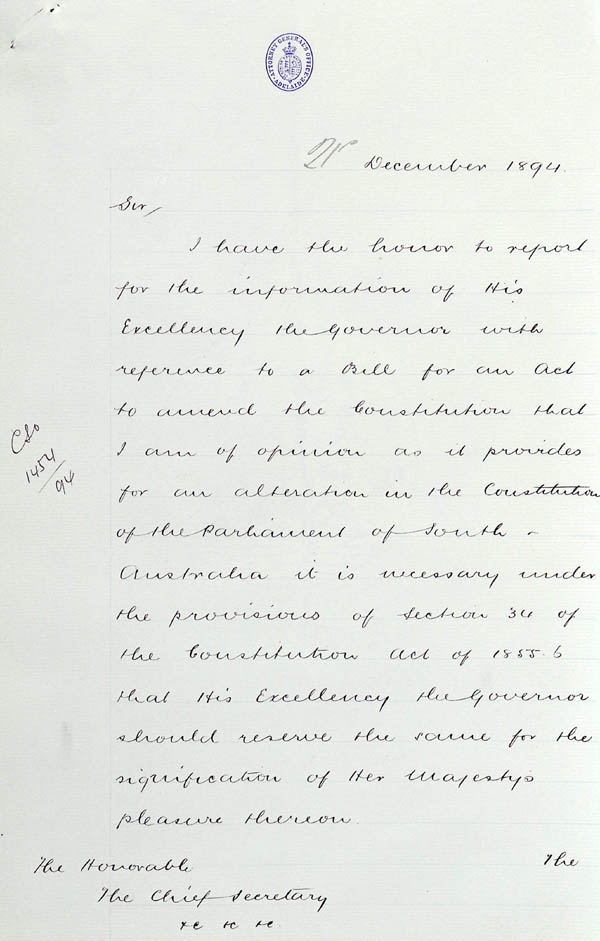 ATTORNEY GENERAL'S OFFICE
ADELAIDE
21 December 1894.
Sir,
I have the honor to report
for the information of His
Excellency the Governor with
reference to a Bill for an Act
to amend the Constitution that
I am of opinion as it provides
for an alteration in the Constitution
of the Parliament of South -
Australia it is necessary under
the provisions of Section 34 of
the Constitution Act of 1855.6
that His Excellency the Governor
should reserve the same for the
signification of Her Majesty's
pleasure thereon.
CSO
1454/94
The Honorable
The Chief Secretary
&c &c &c
The